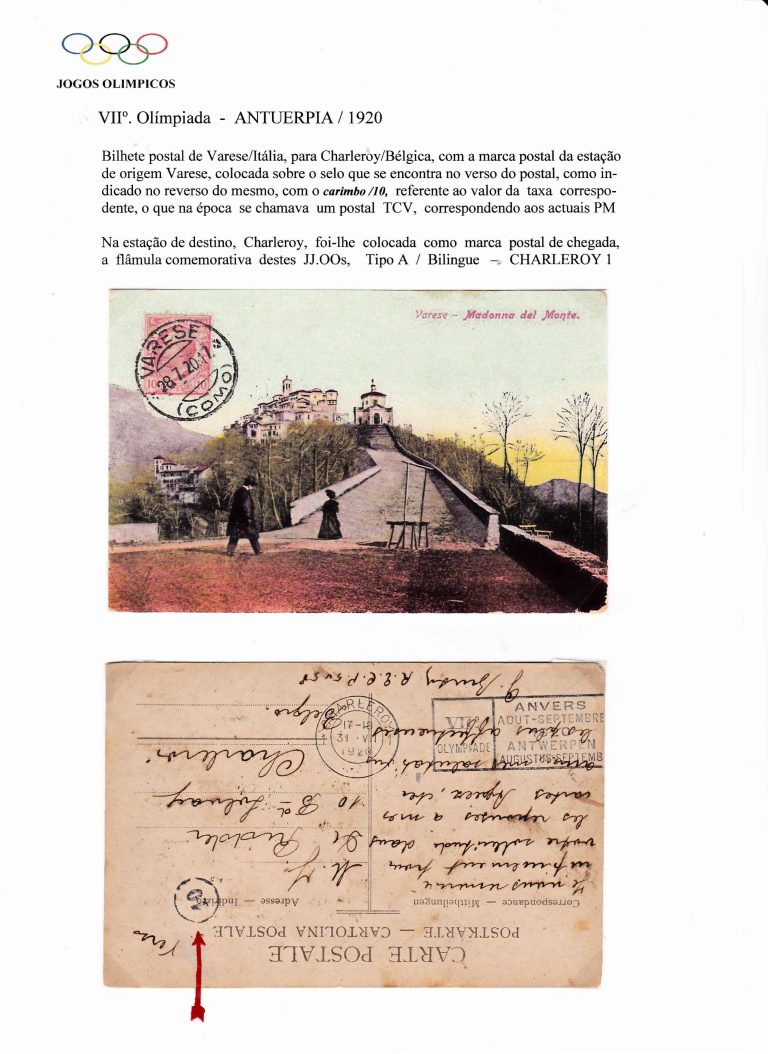 JOGOS OLIMPICOS
VIIº. Olímpiada - ANTUERPIA / 1920
Bilhete postal de Varese/Itália, para Charleroy/Bélgica, com a marca postal da estação
de origem Varese, colocada sobre o selo que se encontra no verso do postal, como in-
dicado no reverso do mesmo, com o carimbo /10, referente ao valor da taxa correspo-
dente, o que na época se chamava um postal TCV, correspondendo aos actuais PM
Na estação de destino, Charleroy, foi-lhe colocada como marca postal de chegada,
a flâmula comemorativa destes JJ.OOs, Tipo A / Bilingue – CHARLEROY 1
Varese – Madonna del Monte.
VARESE
28.7.20.17
(COMO)
10 10
CHARLEROY
17-18
31 VII
1920
VIIE
OLYMPIADE
ANVERS
AOUT-SEPTEMBRE
1920
ANTWERPEN
AUGUSTUS-SEPTEMB
CARTE POSTALE
POSTKARTE — CARTOLINA POSTALE
Correspondance — Mittheilungen
Adresse — Indirizzo
Je vous remercie
infiniment pour
votre sollicitude dans
les réponses a mes
cartes
M. J.
De Ridder
10 Bd Solvay
Charleroi
Belgio.